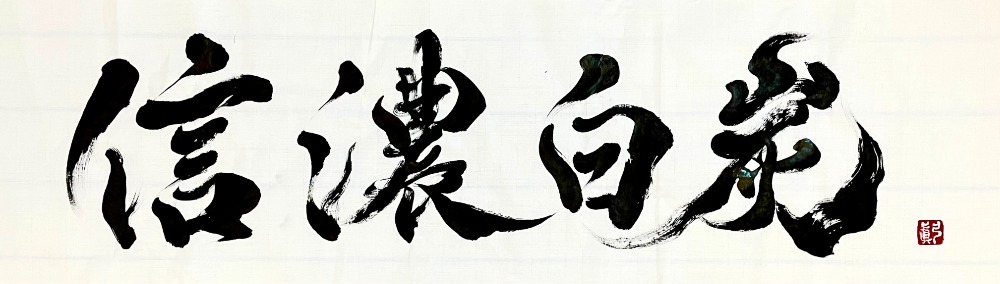 信濃白炭